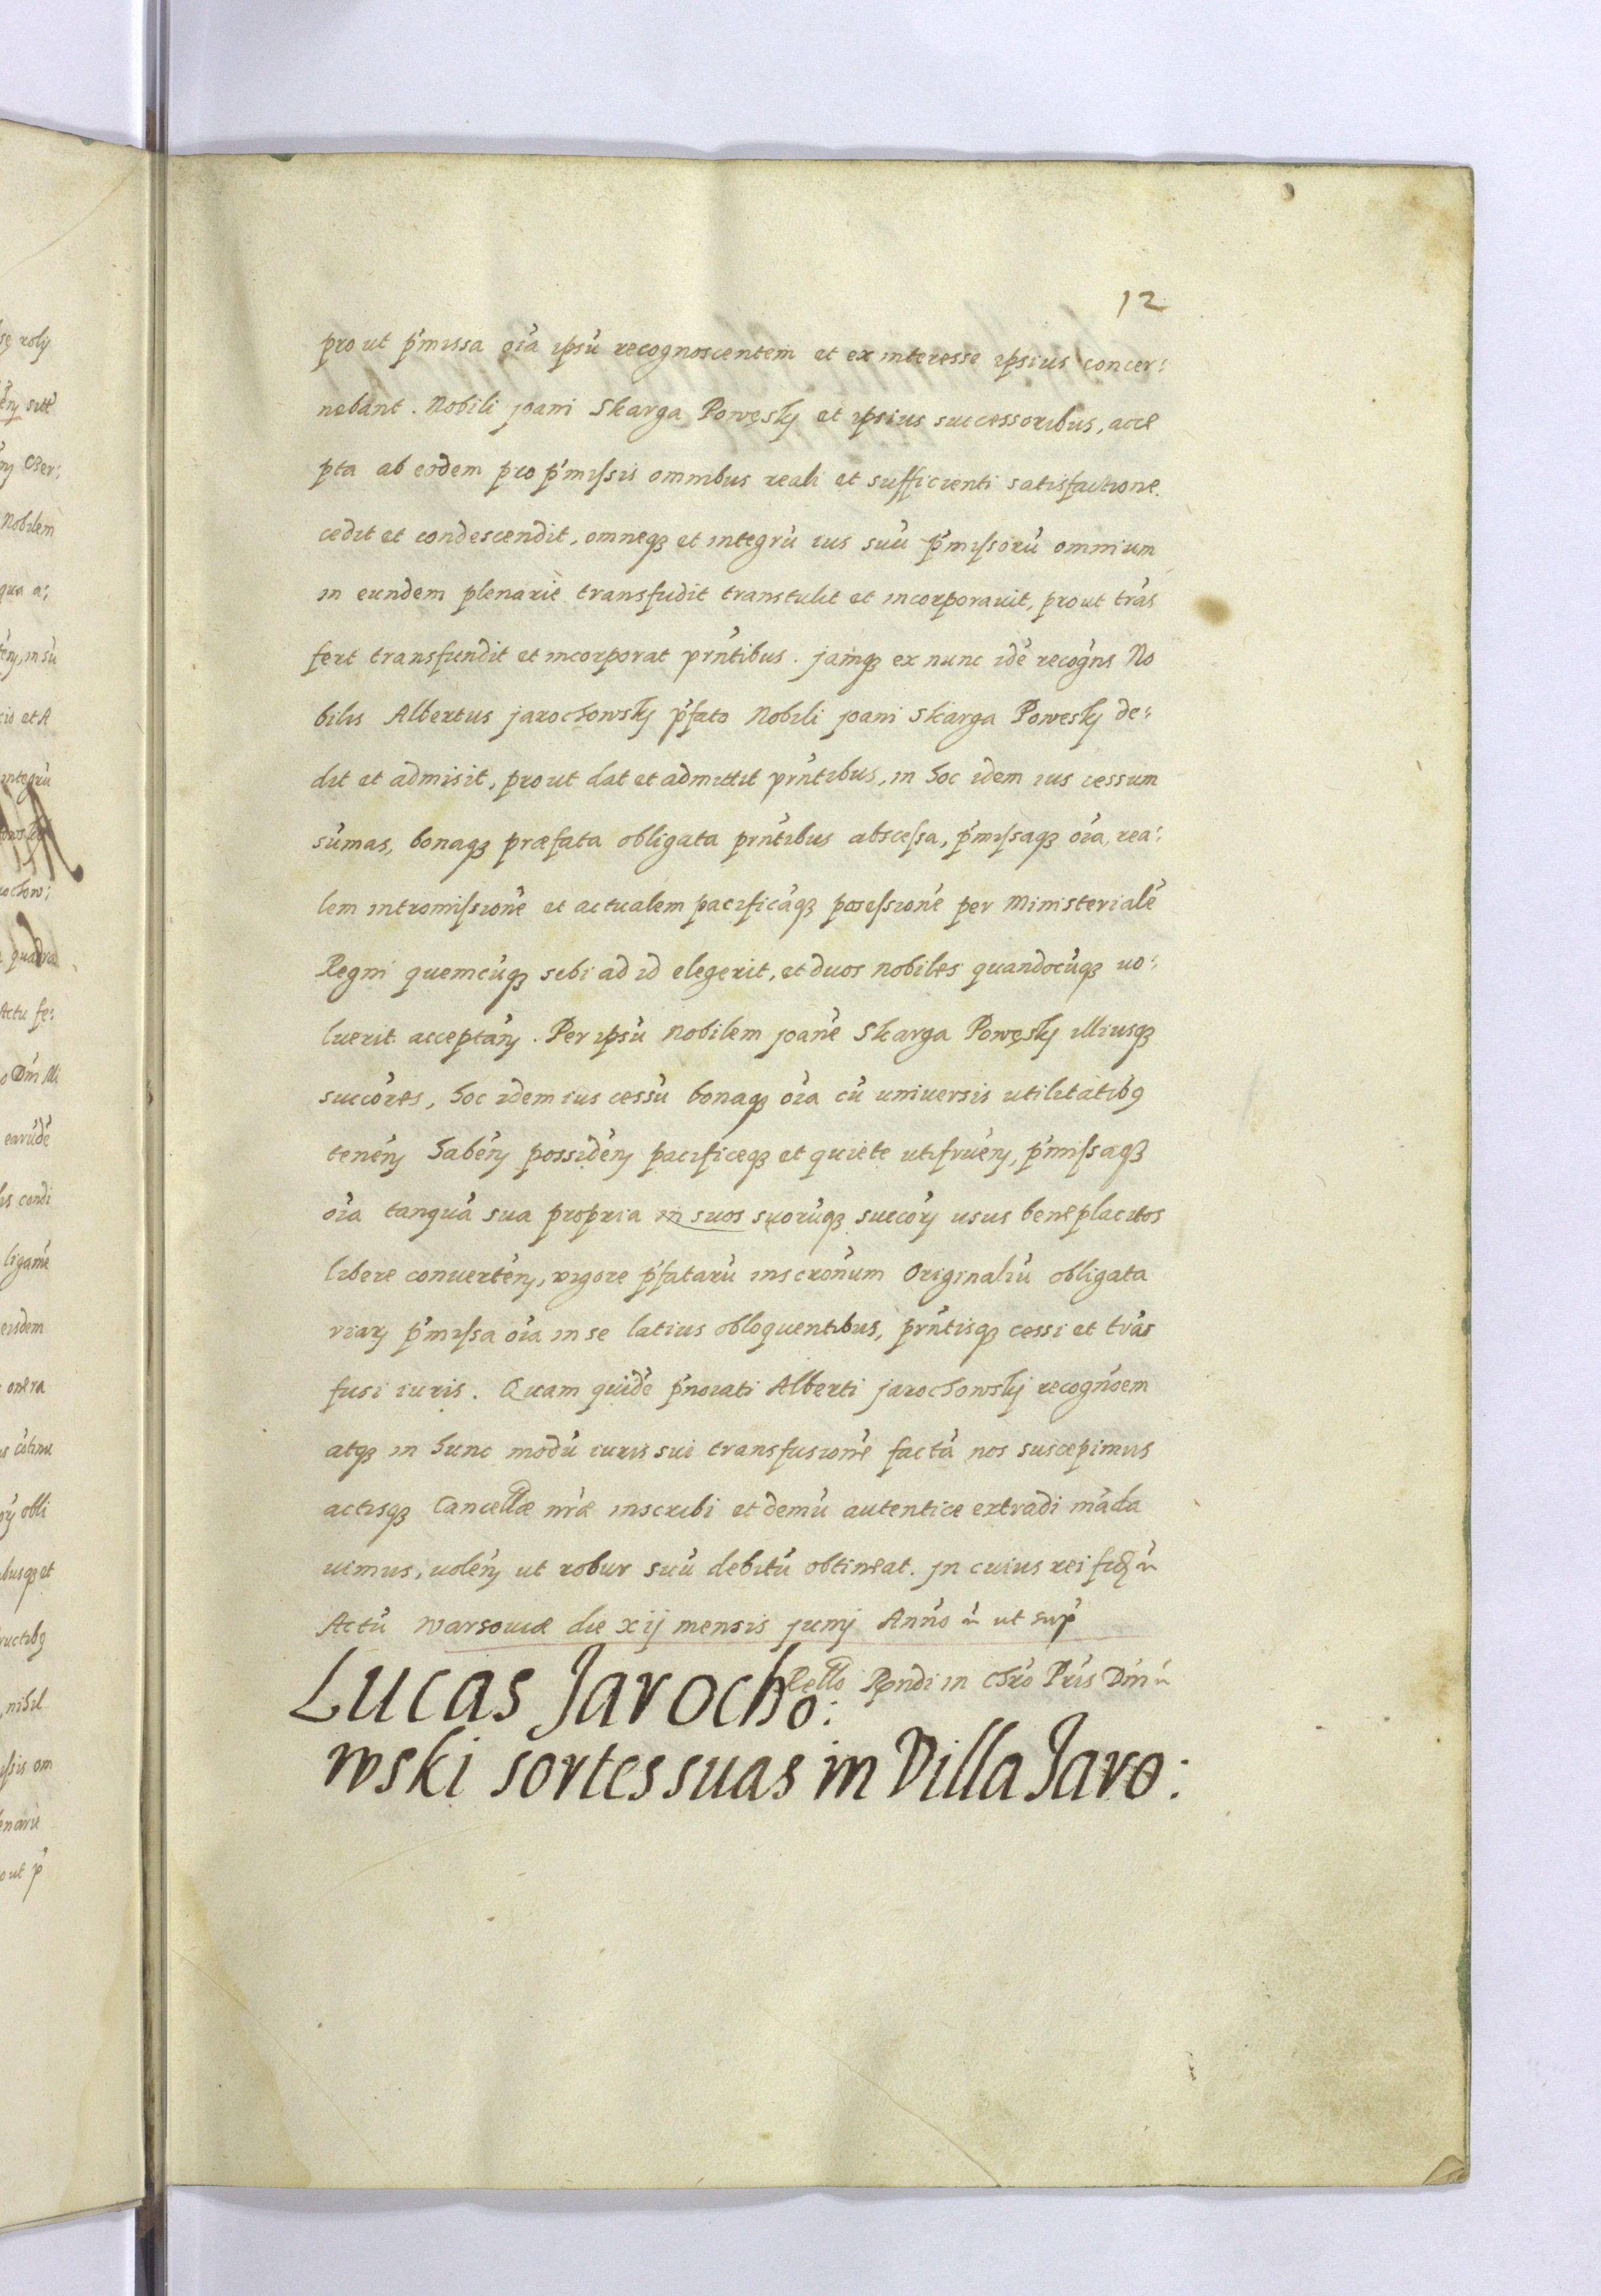 12
prout p'missa oi͞a ipsu͞ recognoscentem et ex interesse ipsius concer:
nebant. Nobili joani Skarga Powęskj et ipsius successoribus, acce
pta ab eodem pro p'missis omnibus reali et sufficienti satisfactione.
cedit et condescendit, omneqȝ et integru͞ ius suu͞ p'missoru͞ omnium
in eundem plenariè transfudit transtulit et incorporavit, prout tra͞s
fert transfundit et incorporat prn͞tibus. jamqȝ ex nunc ide͞ recogn͞s No
bilis Albertus jarochowskj p'fato Nobili joani Skarga Poweskj de:
dit et admisit, prout dat et admittit prn͞tibus, in hoc idem ius cessum
su͞mas, bonaqȝ præfata obligata prn͞tibus abscessa, p'missaqȝ oi͞a, rea:
lem intromissione͞ et actualem pacifica͞qȝ posessione͞ per Ministeriale͞
Regni quemcu͞qȝ sibi ad id elegerit, et duos nobiles quandocu͞qȝ vo:
luerit acceptan͞. Per ipsu͞ Nobilem joane͞ Skarga Powęskj illiusqȝ
succo͞res, hoc idem ius cessu͞ bonaqȝ oi͞a cu͞ universis utilitatibꝯ
tenen͞ haben͞ possiden͞ pacificeqȝ et quiete utifruen͞, p'missaqȝ
oi͞a tanqua͞ sua propria in suos suoru͞qȝ succo͞rꝝ usus beneplacitos
libere converten͞, vigore p'fataru͞ inscro͞num Originaliu͞ obligata
riarꝝ p'missa oi͞a in se latius obloquentibus, prn͞tisqȝ cessi et tra͞s
fusi iuris. Quam quide͞ p'no͞iati Alberti jarochowskj recogno͞em
atqȝ in hunc modu͞ iuris sui transfusione͞ facta͞ nos suscepimus
actisqȝ Cancellæ nr͞æ inscribi et demu͞ autentice extradi ma͞da
vimus, volen͞ ut robur suu͞ debitu͞ obtineat. jn cuius rei fid͞
Actu͞ Warsoviæ die xij mensis junij Anno͞ ut sup͞
Rello Rn͞di in Chr͞o Pr͞is Dn͞i
Lucas Jarocho:
wski sortes suas in Villa Jaro: